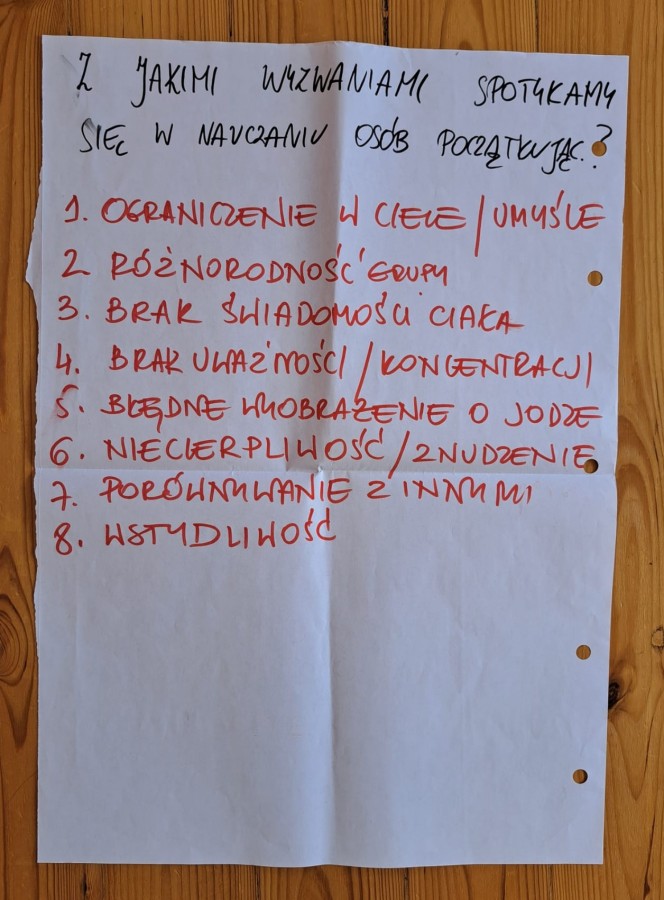 Z JAKIMI WYZWANIAMI SPOTYKAMY
SIĘ W NAUCZANIU OSÓB POCZĄTKUJĄC.?
1. OGRANICZENIE W CIELE/UMYŚLE
2. RÓŻNORODNOŚĆ GRUPY
3. BRAK ŚWIADOMOŚCI CIAŁA
4. BRAK UWAŻNOŚCI/KONCENTRACJI
5. BŁĘDNE WYOBRAŻENIE O JODZE
6. NIECIERPLIWOŚĆ/ZNUDZENIE
7. PORÓWNYWANIE Z INNYMI
8. WSTYDLIWOŚĆ